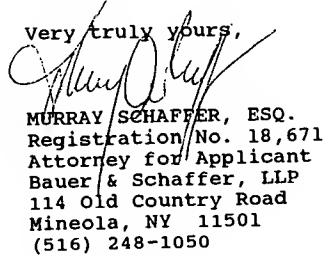 Very truly yours,
MURRAY SCHAFFER, ESQ.
Registration No. 18,671
Attorney for Applicant
Bauer & Schaffer, LLP
114 Old Country Road
Mineola, NY 11501
(516) 248-1050